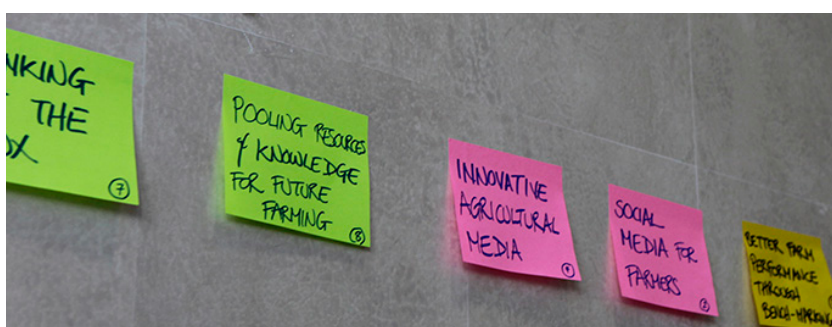 NKING
THE
OX
7
POOLING RESOURCES
& KNOWLEDGE
FOR FUTURE
FARMING
8
INNOVATIVE
AGRICULTURAL
MEDIA
SOCIAL
MEDIA FOR
FARMERS
BETTER FARM
PERFORMANCE
THROUGH
BENCH-MARKING